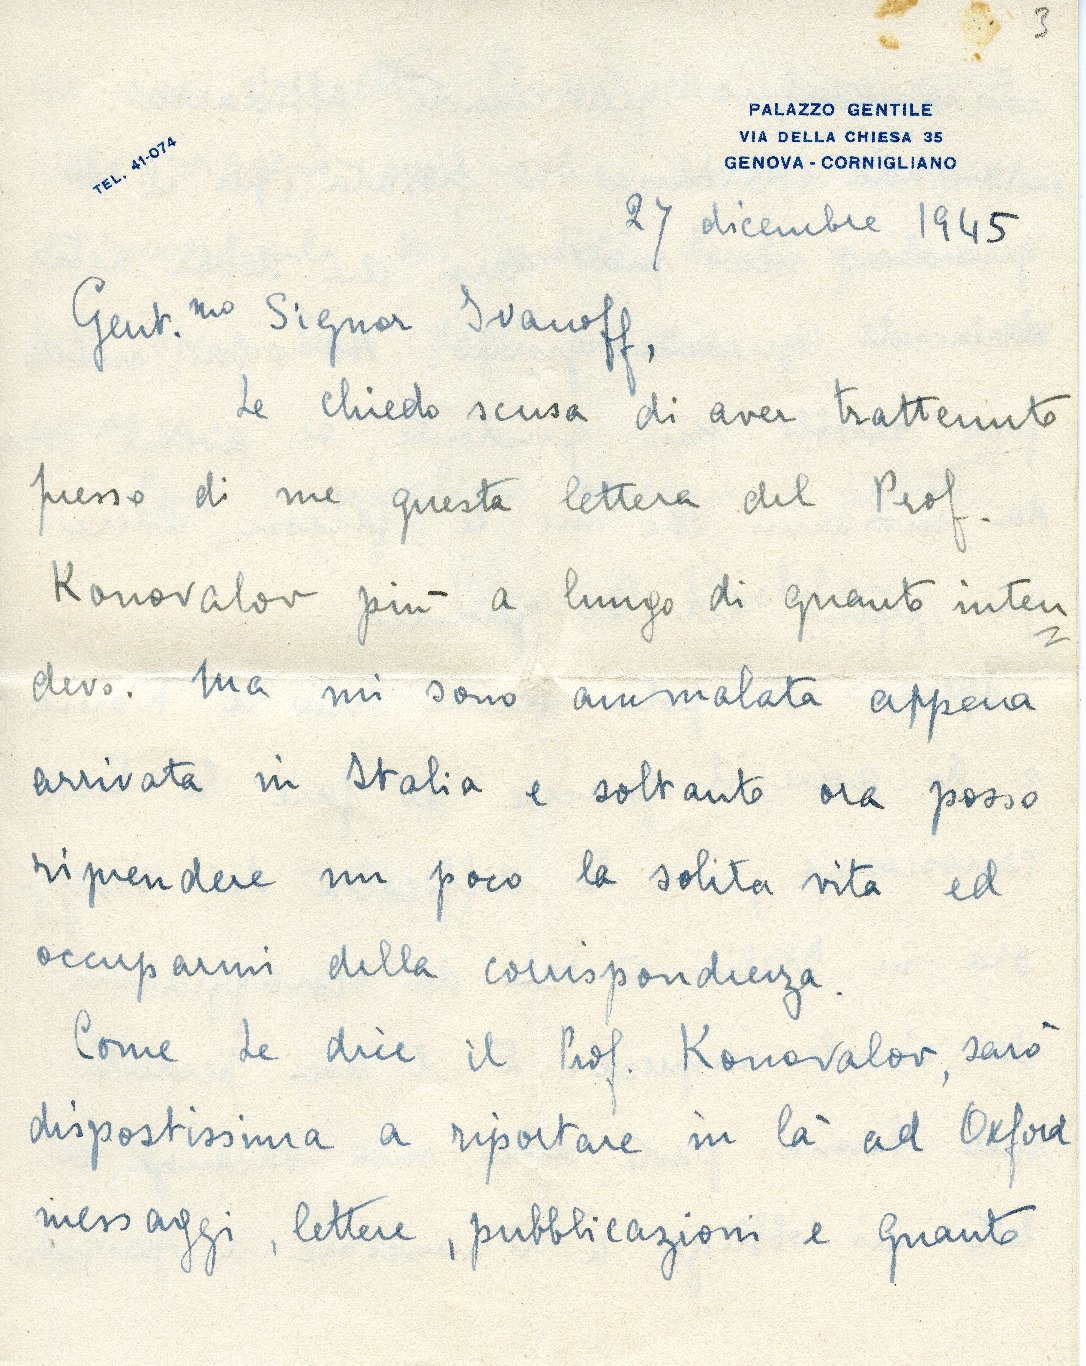 3
PALAZZO GENTILE
VIA DELLA CHIESA 35
GENOVA - CORNIGLIANO
TEL. 41-074
27 dicembre 1945
Gent.mo Signor Ivanoff,
Le chiedo scusa di aver trattenuto
presso di me questa lettera del Prof.
Konovalov più a lungo di quanto inten=
devo. Ma mi sono ammalata appena
arrivata in Italia e soltanto ora posso
riprendere un poco la solita vita ed
occuparmi della corrispondenza.
Come Le dice il Prof. Konovalov, sarò
dispostissima a riportare in là ad Oxford
messaggi, lettere, pubblicazioni e quanto